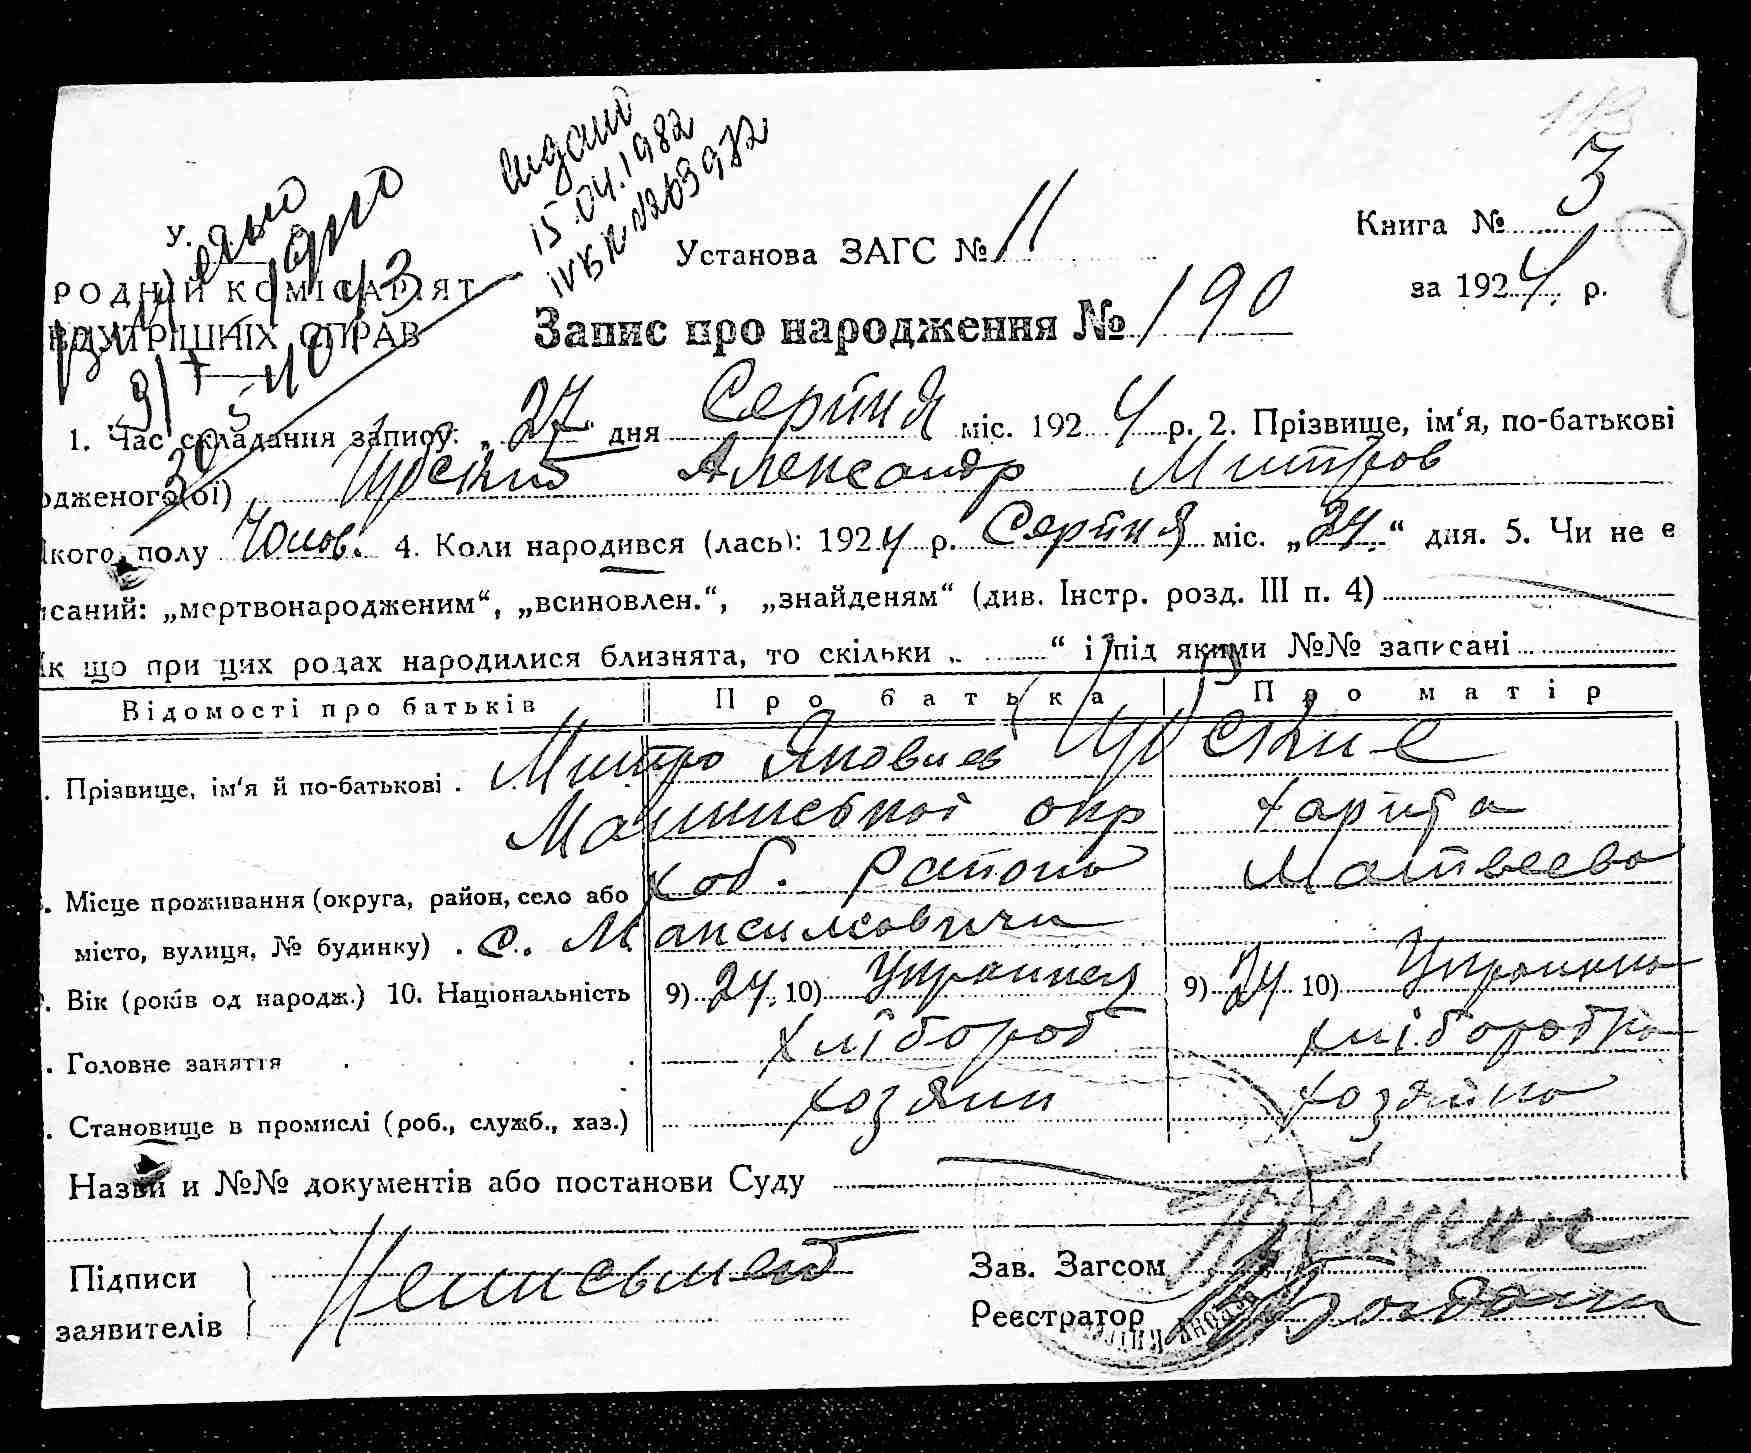 видано
15.04.1982
IVБК №263972
Книга № 3
У.
Установа ЗАГС № 11
РОДНІЙ КОМІСАРІЯТ
за 1924 р.
ВНУТРІШНІХ СПРАВ
Запис про народження № 190
1. Час складання запису: „27“ дня Серпня міс. 1924 р. 2. Прізвище, ім‘я, по-батькові
одженого(ої) Александр Митров
якого полу Чолов. 4. Коли народився (лась): 1924 р. Серпня міс. „24.“ дня. 5. Чи не є
исаний: „мертвонародженим“, „всиновлен.“, „знайденям“ (див. Інстр. розд. III п. 4)
Як що при цих родах народилися близнята, то скільки „ “ і під якими №№ записані
Відомості про батьків Про батька Про матір
. Прізвище, ім‘я й по-батькові . Митро Яковлев
Малинської окр Харита
. Місце проживання (округа, район, село або Хаб. району Матвеева
місто, вулиця, № будинку) . с. Максимовичи
. Вік (років од народж.) 10. Національність 9) 24. 10) Украинец 9) 24 10) Украинка
. Головне заняття хлібороб хліборобка
. Становище в промислі (роб., служб., хаз.) хозяин хозяйка
Назви и №№ документів або постанови Суду
Підписи Неписьмен Зав. Загсом
заявителів Реєстратор